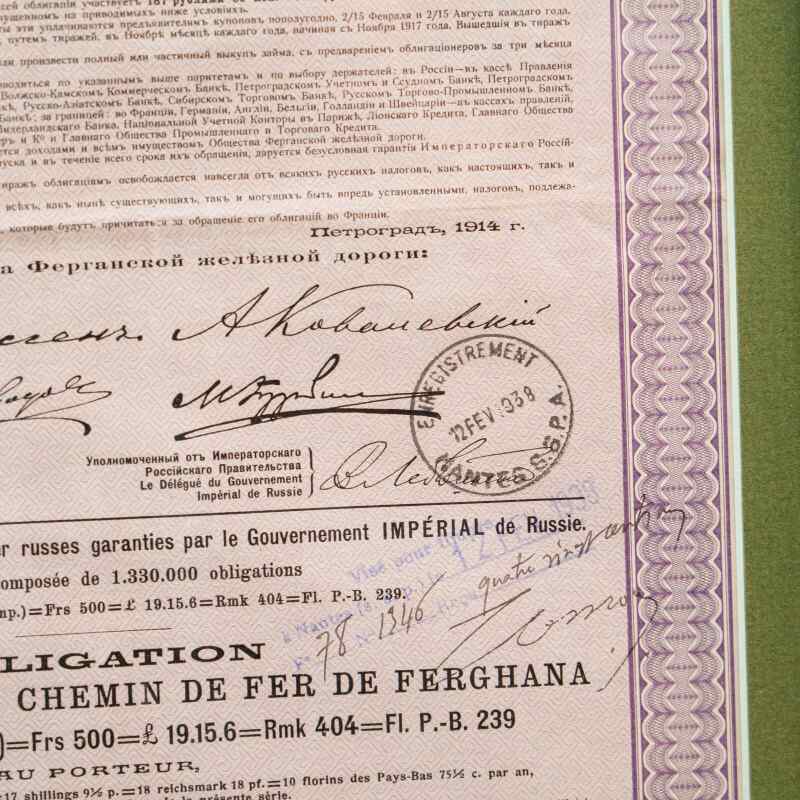 сей облигаціи участвуетъ 187 рублями
пущенномъ на приводимыхъ ниже условіяхъ.
ты эти уплачиваются предъявителямъ купоновъ пополугодно, 2/15 Февраля и 2/15 Августа каждаго года.
путемъ тиражей, въ Ноябрѣ мѣсяцѣ каждаго года, начиная съ Ноября 1917 года. Вышедшія въ тиражъ
или произвести полный или частичный выкупъ займа, съ предвареніемъ облигаціонеровъ за три мѣсяца
водиться по указаннымъ выше паритетамъ и по выбору держателей: въ Россіи—въ кассѣ Правленія
Волжско-Камскомъ Коммерческомъ Банкѣ, Петроградскомъ Учетномъ и Ссудномъ Банкѣ, Петроградскомъ
кѣ, Русско-Азіатскомъ Банкѣ, Сибирскомъ Торговомъ Банкѣ, Русскомъ Торгово-Промышленномъ Банкѣ,
Банкѣ; за границей: во Франціи, Германіи, Англіи, Бельгіи, Голландіи и Швейцаріи—въ кассахъ правленій,
Нидерландскаго Банка, Національной Учетной Конторы въ Парижѣ, Ліонскаго Кредита, Главнаго Общества
ръ и Кº и Главнаго Общества Промышленнаго и Торговаго Кредита.
ется доходами и всѣмъ имуществомъ Общества Ферганской желѣзной дороги.
пуска и въ теченіе всего срока ихъ обращенія, даруется безусловная гарантія Императорскаго Россій-
тиражъ облигаціямъ освобождается навсегда отъ всякихъ русскихъ налоговъ, какъ настоящихъ, такъ и
всѣхъ, какъ нынѣ существующихъ, такъ и могущихъ быть впредь установленными, налоговъ, подлежа-
которые будутъ причитаться за обращеніе его облигацій во Франціи.
Петроградъ, 1914 г.
а Ферганской желѣзной дороги:
А Ковалевскій
ENREGISTREMENT
12 FEV 1938
NANTES S.S.P.A.
Уполномоченный отъ Императорскаго
Россійскаго Правительства
Le Délégué du Gouvernement
Impérial de Russie
r russes garanties par le Gouvernement IMPÉRIAL de Russie.
Visé pour
omposée de 1.330.000 obligations
mp.)=Frs 500=£ 19.15.6=Rmk 404=Fl. P.-B. 239.
quatre vingt
à Nantes
78 1346
LIGATION
CHEMIN DE FER DE FERGHANA
)=Frs 500=£ 19.15.6=Rmk 404=Fl. P.-B. 239
AU PORTEUR,
=17 shillings 9½ p.=18 reichsmark 18 pf.=10 florins des Pays-Bas 75½ c. par an,
la présente série.